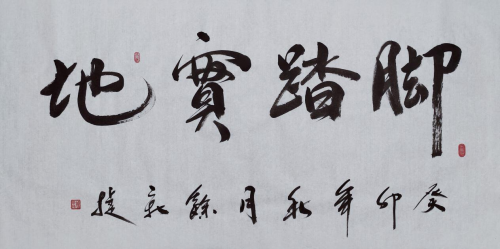 脚踏實地
癸卯年秋月餘新捷